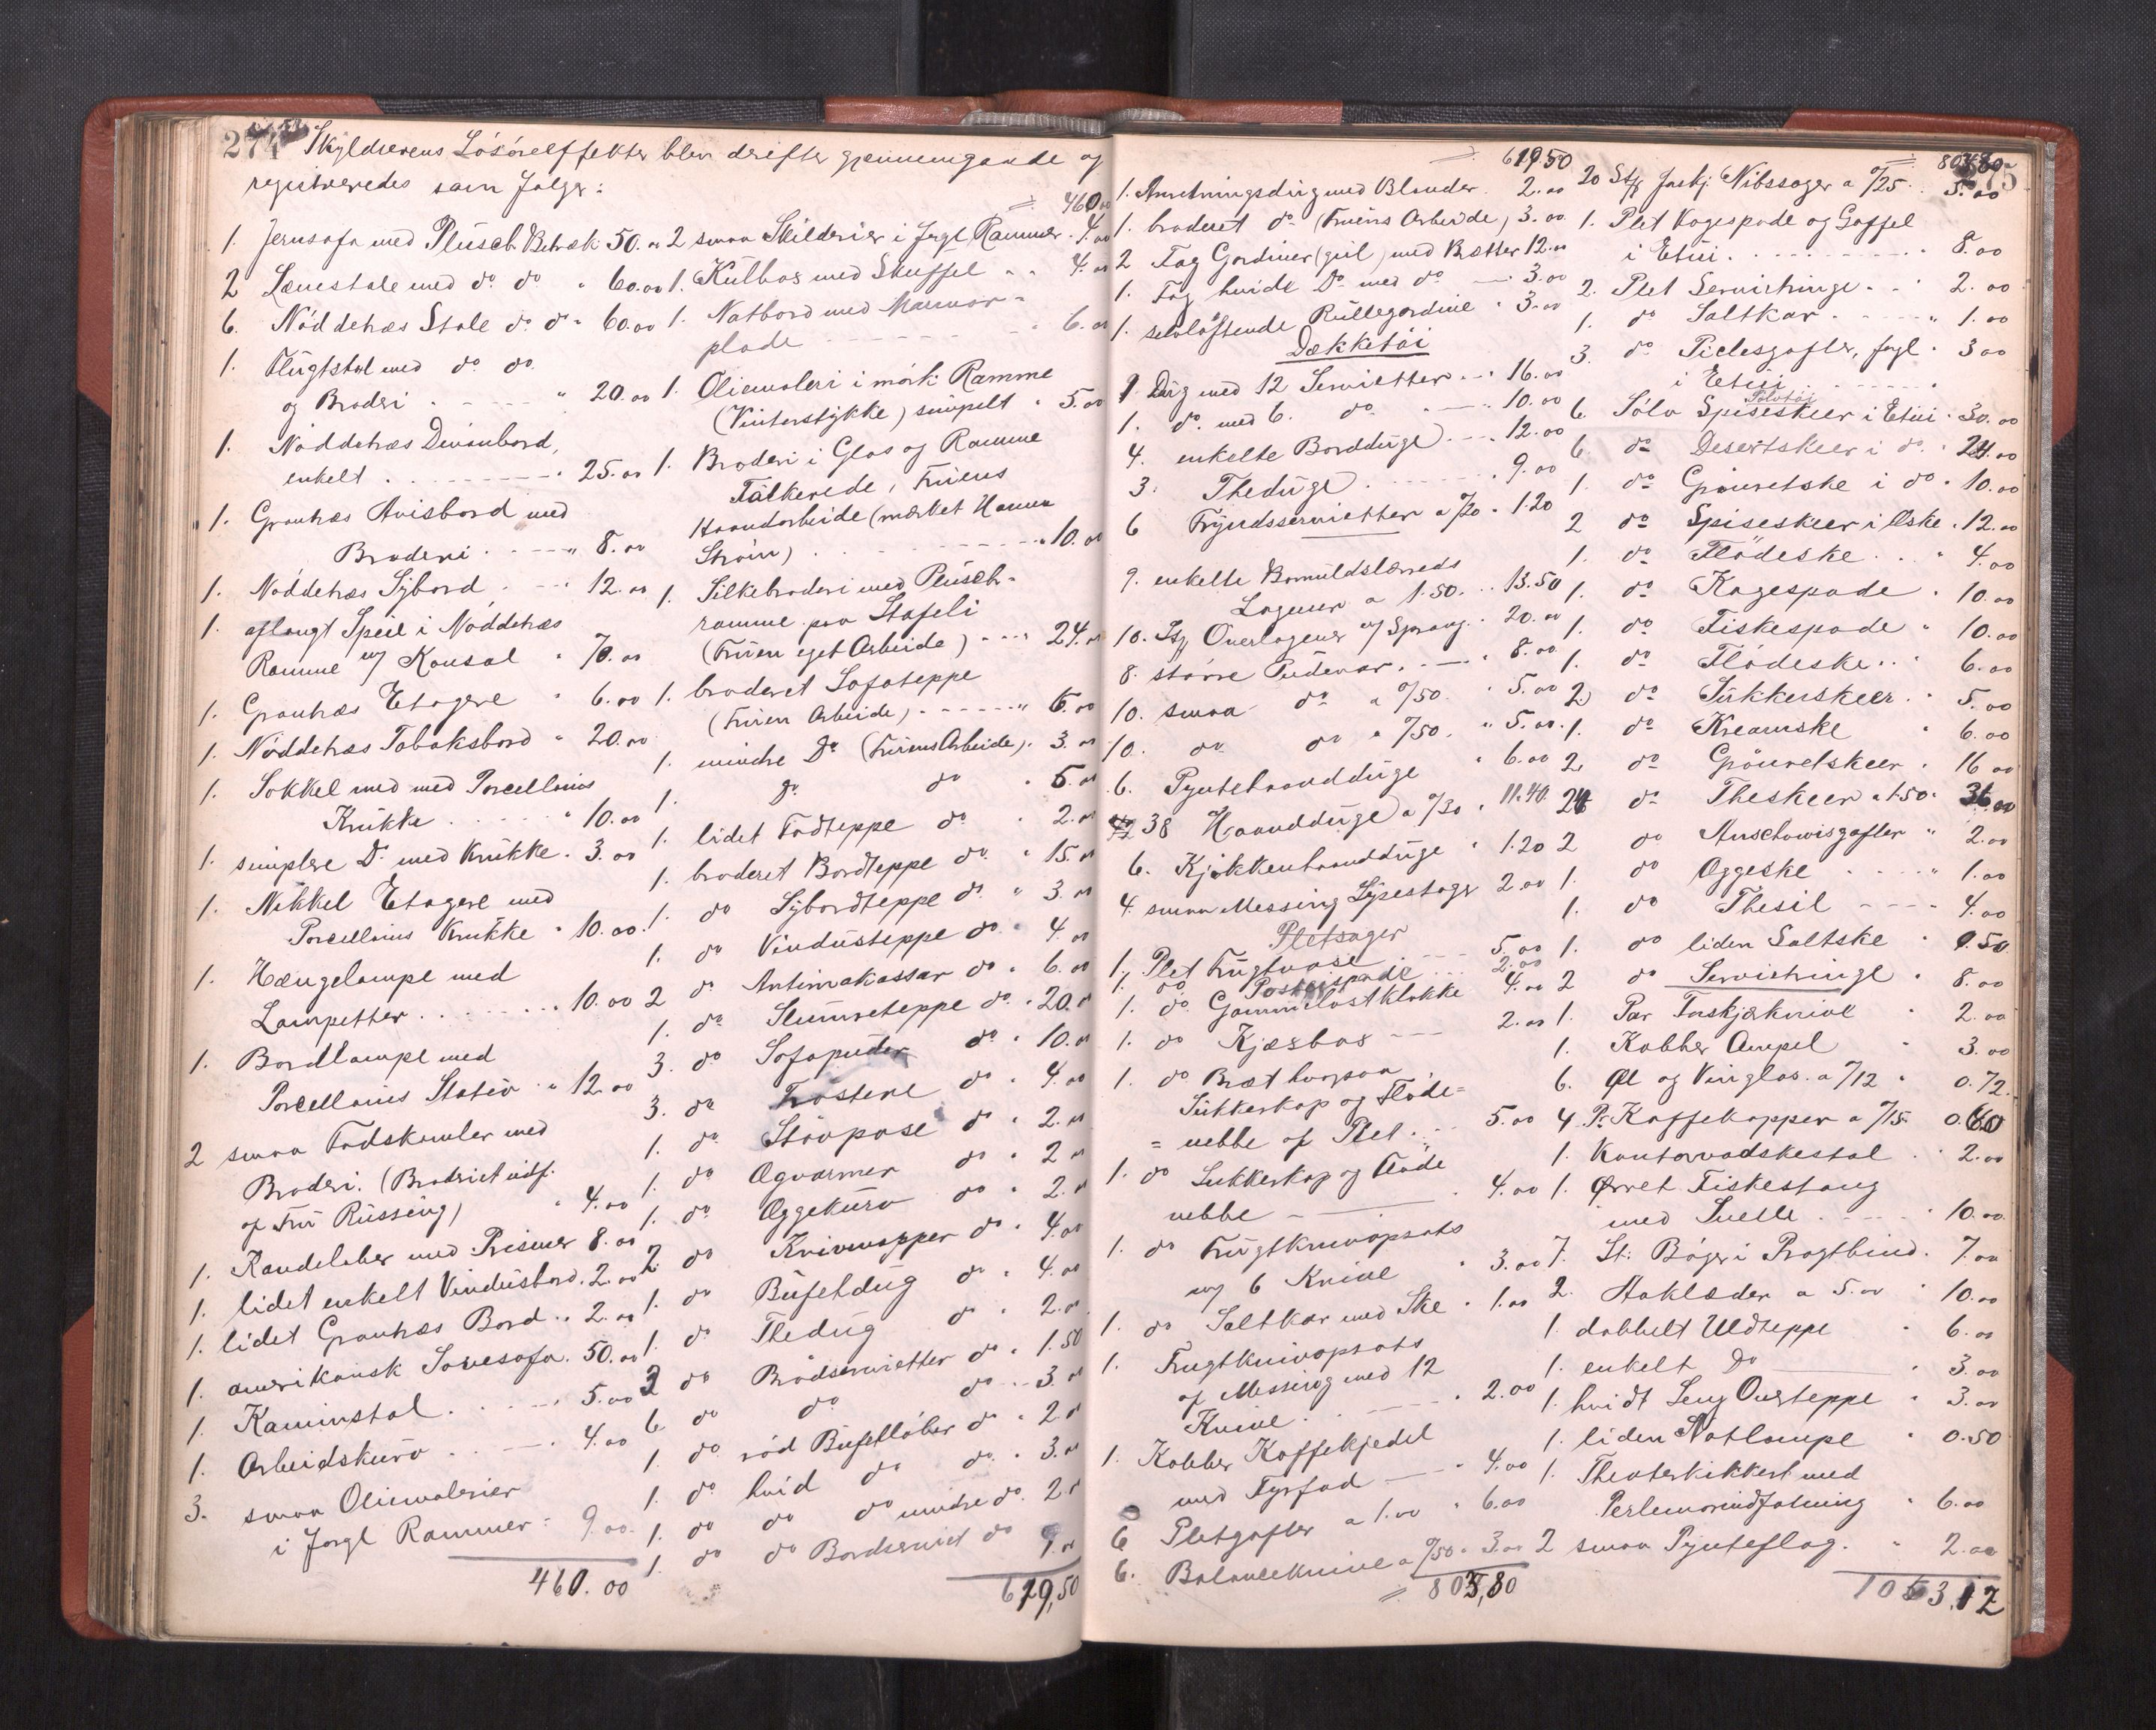 274
Skyldnerens Løsøreffekter blev derefter gjennemgaaede og
registreredes som følger:
1. Jernsofa med Plüsch Betræk 50.00
2 Lænestole med do do " 60.00
6. Nøddetræs Stole do do " 60.00
1. Flugtstol med do do
og Broderi " 20.00
1. Nøddetræs Divanbord,
enkelt " 25.00
1. Grantræs Avisbord med
Broderi " 8.00
1. Nøddetræs Sybord 12.00
1. aflangt Speil i Nøddetræs
Ramme m/ Konsol " 70.00
1. Grantræs Etagere " 6.00
1. Nøddetræs Tobaksbord " 20.00
1. Sokkel med med Porcellains
Krukke " 10.00
1. simplere Do med Krukke " 3.00
1. Nikkel Etagere med
Porcellains Krukke " 10.00
1. Hængelampe med
Lampetter 10.00
1. Bordlampe med
Porcellains Stativ " 12.00
2 smaa Fodskamler med
Broderi. (Broderiet udf.
af Fru Russeng) " 4.00
1. Kandelaber med Prismer 8.00
1. lidet enkelt Vinduesbord. 2.00
1. lidet Grantræs Bord " 2.00
1. amerikansk Sovesofa. 50.00
1. Kaminstol 5.00
1. Arbeidskurv 4.00
3. smaa Oliemalerier
i forgl Rammer " 9.00
460.00
460.00
2 smaa Skilderier i forgl Rammer 4.00
1. Kulbox med Skuffel " 4.00
1. Natbord med Marmor-
plade " 6.00
1. Oliemaleri i mørk Ramme
(Vinterstykke) simpelt " 5.00
1. Broderi i Glas og Ramme
Fruens
Haandarbeide (mærket Hanna
Strøm) " 10.00
1. Silkebroderi med Plüsch-
ramme paa Stafeli
(Fruen eget Arbeide) 24.00
1. broderet Sofateppe
(Fruen Arbeide) " 6.00
1. mindre Do (Fruens Arbeide) " 3.00
1. Do do " 5.00
1. lidet Fodteppe do " 2.00
1. broderet Bordteppe do " 15.00
1. do Sybordteppe do " 3.00
1. do Vindusteppe do " 4.00
2 do Antimakassar do " 6.00
1. do Slumreteppe do " 20.00
3. do Sofapuder do " 10.00
3. do do " 4.00
1. do Støvpose do " 2.00
1. do Ægvarmer do " 2.00
1. do Æggekurv do " 2.00
2 do Knivmapper do " 4.00
1. do Bufetdug do " 4.00
1. do Thedug do " 2.00
3 do Brødservietter do " 1.50
6 do do do " 3.00
1. do rød Bufetløber do " 2.00
1. do hvid do do " 3.00
1. do do do mindre do 2.00
1. do do Bordserviet do 9.00
619,50
619.50
1. Anretningsdug med Blonder 2.00
1. broderet do (Fruens Arbeide) 3.00
2 Fag Gardiner (gul) med Brætter 12.00
1. Fag hvide Do med do 3.00
1. selvløftende Rullegardine " 3.00
Dækketøi
1 Dug med 12 Servietter 16.00
1. do med 6. do 10.00
4. enkelte Bordduge 12.00
3. Theduge 9.00
6 Fryndsservietter a /20 " 1.20
9. enkelte Bomuldslærreds
Lagener a 1.50 13.50
10. Overlagener m/ Sprang 20.00
8. større Pudevar 8.00
10. smaa do a /50 " 5.00
10. do do " /50 " 5.00
6. Pyntehaandduge " 6.00
38 Haandduge a /30 " 11.40
6. Kjøkkenhaandduge " 1.20
4. smaa Messing Lysestager 2.00
Pletsager
1. Plet Frugtvase 5.00
1. do Posteispade 2.00
1. do Gammelostklokke 4.00
1. do Kjæsbox 2.00
1. do Bræt hvorpaa
Sukkerkop og Fløde-
= nebbe af Plet 5.00
1. do Sukkerkop og Fløde
nebbe 4.00
1. do Frugtknivopsats
m/ 6 Knive " 3.00
1. do Saltkar med Ske " 1.00
1. Frugtknivopsats
af Messing med 12
Knive " 2.00
1. Kobber Kaffekjedel
med Fyrfad " 4.00
6 Pletgafler a 1.00 " 6.00
6. Balanceknive a /50 " 3.00
803,80
803.80
275
20 Stk forskj. Nibssager a /25 5.00
1. Plet Kagespade og Gaffel
i Etui 8.00
2. Plet Servietringe 2.00
1. do Saltkar " 1.00
3. do Piclesgafler, forgl. 3.00
i Etui
Sølvtøi
6. Sølv Spiseskeer i Etui " 30.00
6. do Desertskeer i do " 24.00
1. do Grønretske i do " 10.00
2 do Spiseskeer i Æske " 12.00
1. do Flødeske " 4.00
1. do Kagespade " 10.00
1. do Fiskespade " 10.00
1. do Flødeske " 6.00
2 do Sukkerskeer " 5.00
1. do Kreamske " 6.00
2 do Grønretskeer " 16.00
24 do Theskeer a 1.50 " 36.00
2 do Anschowisgafler " 2.00
1. do Æggeske " 1.00
1. do Thesil 4.00
1. do liden Saltske " 0.50
2 do Servietringe " 8.00
1. Par Forskjærknive " 2.00
1. Kobber Ampel " 3.00
6. Øl og Vinglas a /12 " 0.72
4 Pr. Kaffekopper a /15 0.60
1. Kontorvadskestol " 2.00
1. Ørret Fiskestang
med Snelle " 10.00
7. St. Bøger i Pragtbind. 7.00
2. a 5.00 " 10.00
1. dobbelt Uldteppe " 6.00
1. enkelt Do " 3.00
1. hvidt Seng Overteppe " 3.00
1. liden Natlampe " 0.50
1. Theaterkikkert med
Perlemorindfatning " 6.00
2 smaa Pynteflag " 2.00
1053.12